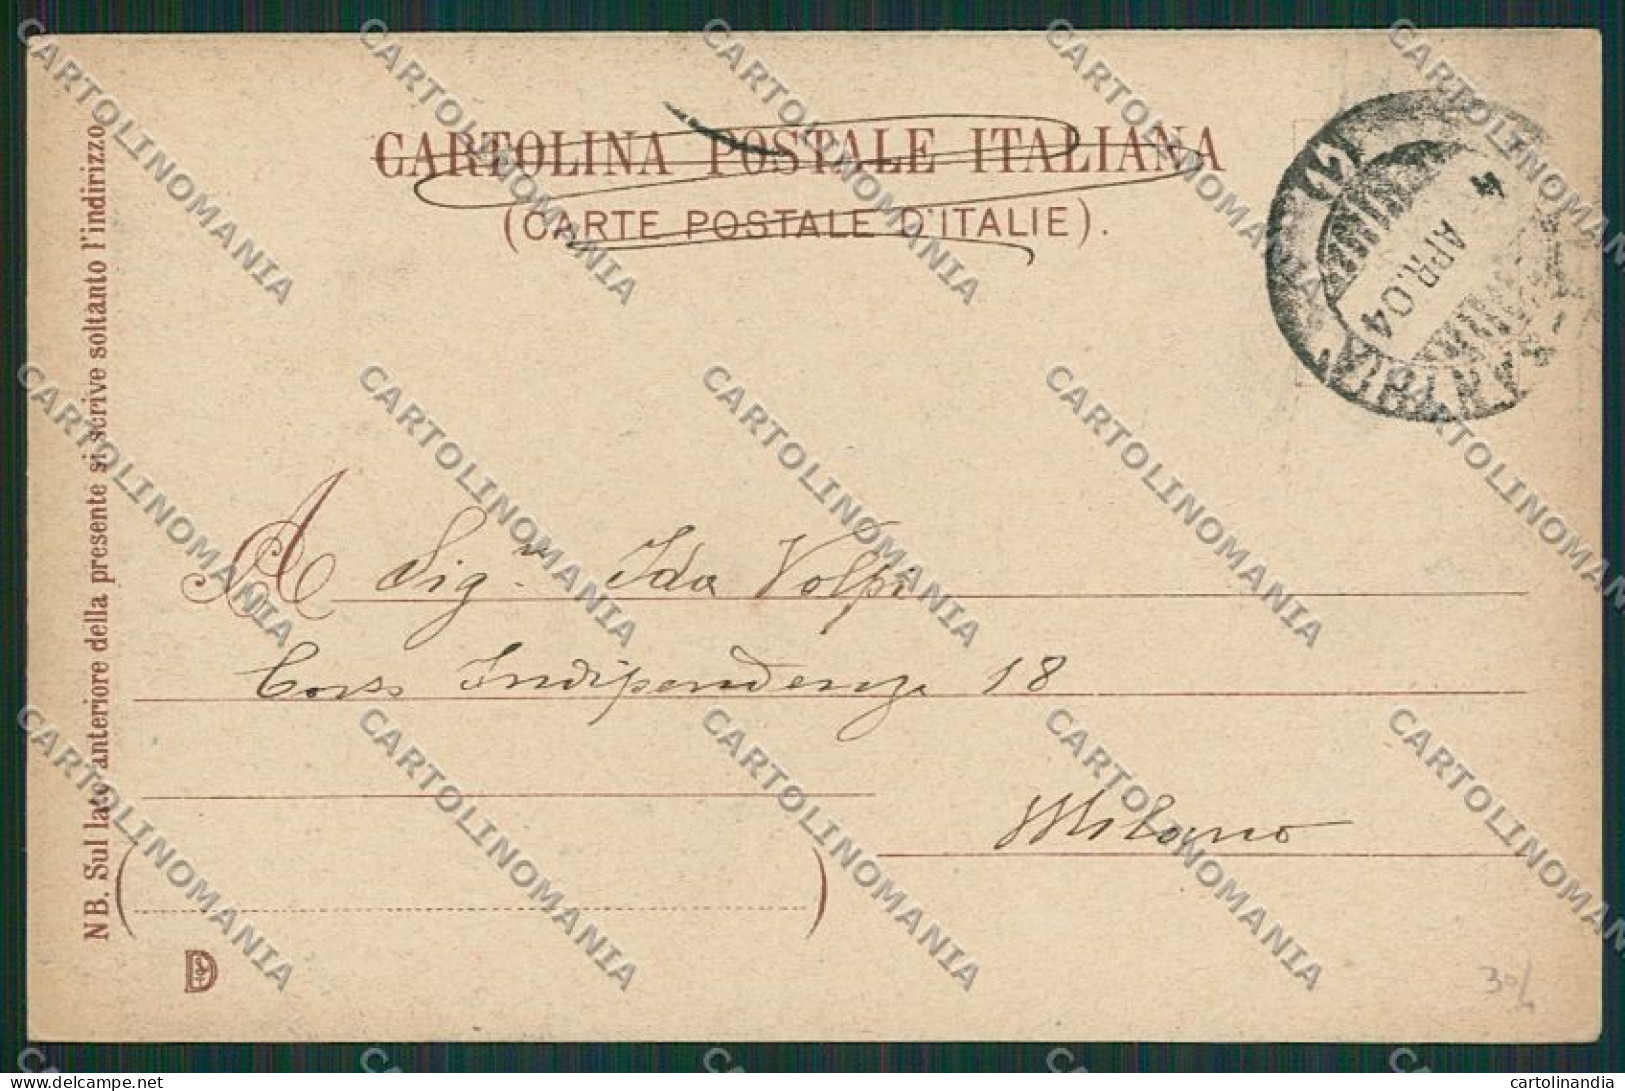 CARTOLINA POSTALE ITALIANA
(CARTE POSTALE D'ITALIE).
4
APR.04
NB. Sul lato anteriore della presente si scrive soltanto l'indirizzo
A Sigʳᵃ Ida Volpi
Corso Indipendenza 18
Milano
30/4
CARTOLINOMANIA
www.delcampe.net
cartolinandia